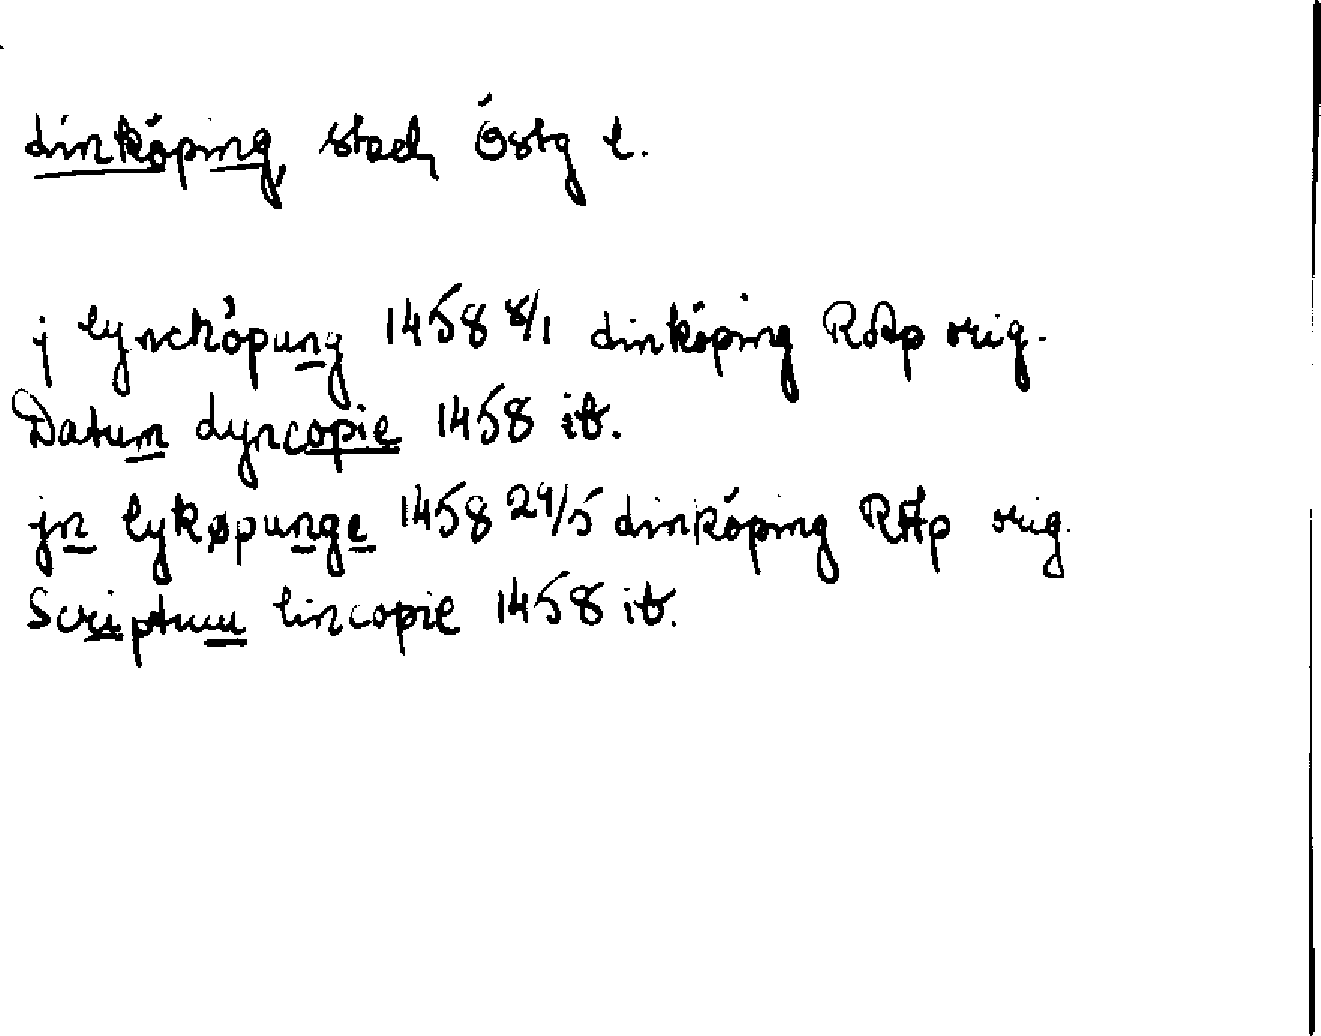 Linköping, stad, Östg l.
j lyncköpung 1458 8/1 Linköping RAp orig.
Datum Lyncopie 1458 ib.
jn lykøpunge 1458 29/5 Linköping RAp orig.
Scriptum lincopie 1458 ib.